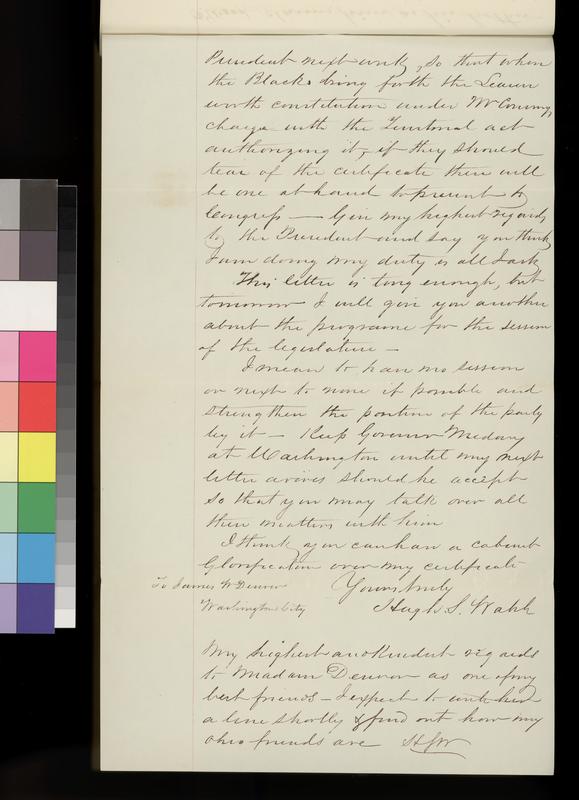 President next week, so that when
the Blacks bring forth the Leaven
worth constitution under Mr Conway's
charge with the Territorial act
authorizing it, if they should
tear of the certificate there will
be one at hand to present to
Congress — Give my highest regards
to the President and say you think
I am doing my duty is all I ask
This letter is long enough, but
tomorrow I will give you another
about the programe for the session
of the legislature —
I mean to have no session
or next to none if possible and
strengthen the position of the party
by it — Keep Governor Medary
at Washington until my next
letter arives should he accept
so that you may talk over all
these matters with him
I think you can have a cabinet
Glorification over my certificate
Yours truly
To James W Denver
Hugh S. Walsh
Washington City
My highest and Kindest regards
to Madam Denver as one of my
best friends — I expect to write her
a line shortly & find out how my
Ohio friends are HSW